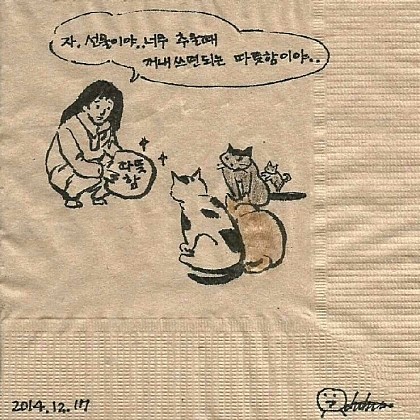 자, 선물이야.. 너무 추울때
꺼내 쓰면 되는 따뜻함이야..
따뜻
함
2014.12.17